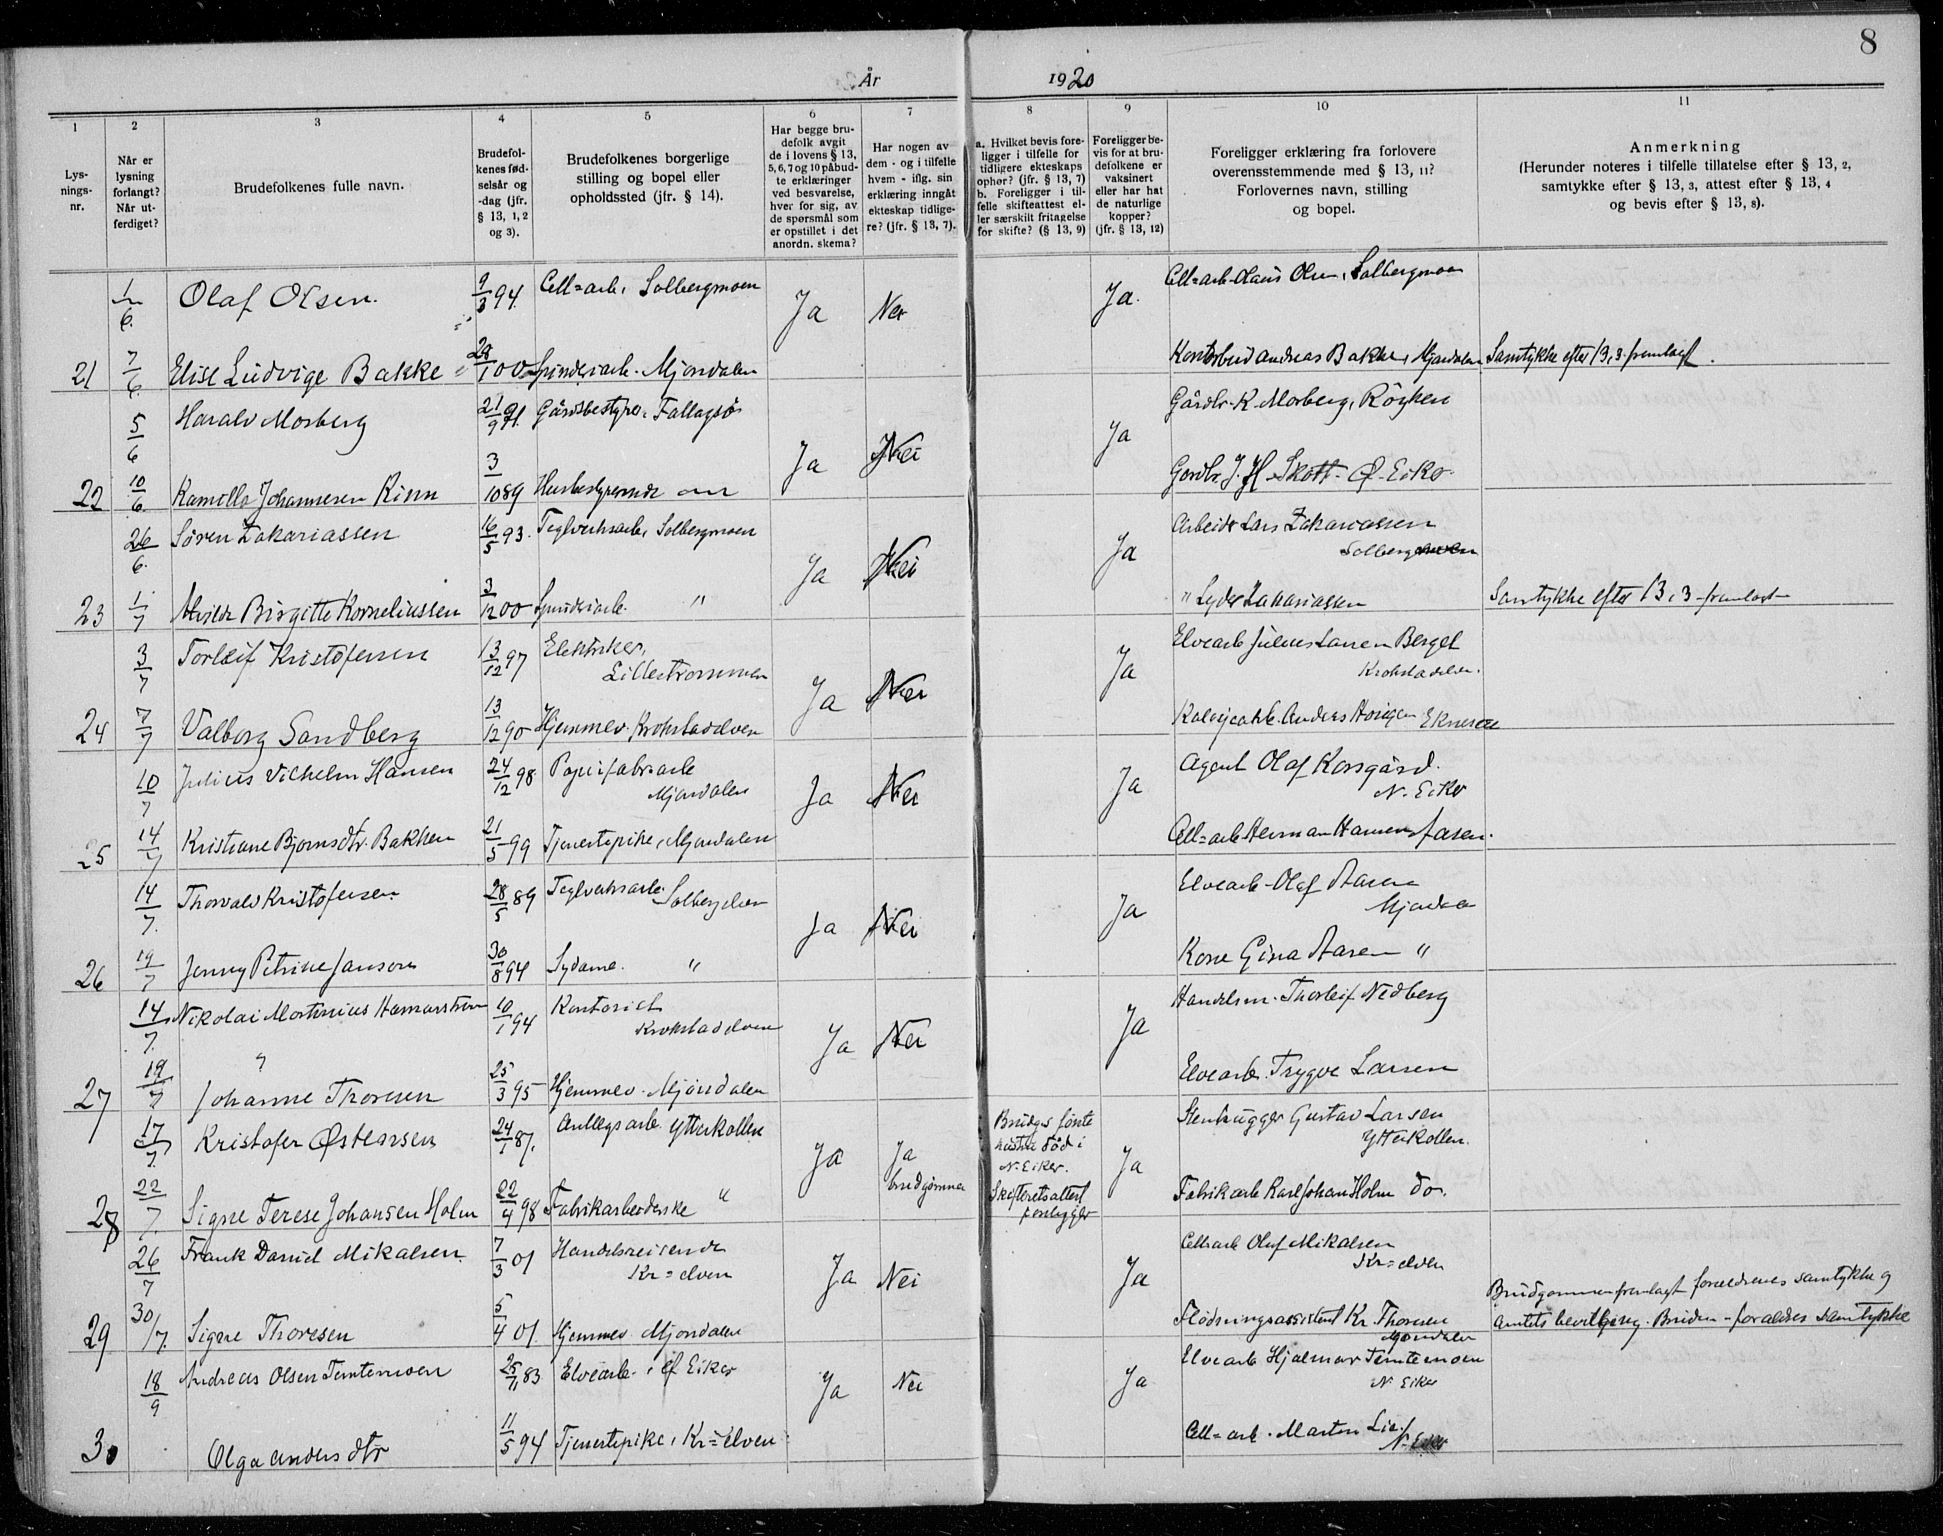 8
År 1920
1 2 3 4 5 6 7 8 9 10 11
Lysningsnr.
Når er lysning forlangt? Når utferdiget?
Brudefolkenes fulle navn.
Brudefolkenes fødselsår og -dag (jfr. § 13, 1, 2 og 3).
Brudefolkenes borgerlige stilling og bopel eller opholdssted (jfr. § 14).
Har begge brudefolk avgit de i lovens § 13, 5, 6, 7 og 10 påbudte erklæringer ved besvarelse, hver for sig, av de spørsmål som er opstillet i det anordn. skema?
Har nogen av dem - og i tilfelle hvem - iflg. sin erklæring inngått ekteskap tidligere? (jfr. § 13, 7).
a. Hvilket bevis foreligger i tilfelle for tidligere ekteskaps ophør? (jfr. § 13, 7)
b. Foreligger i tilfelle skifteattest eller særskilt fritagelse for skifte? (§ 13, 9)
Foreligger bevis for at brudefolkene er vaksinert eller har hat de naturlige kopper? (jfr. § 13, 12)
Foreligger erklæring fra forlovere overensstemmende med § 13, 11? Forlovernes navn, stilling og bopel.
Anmerkning
(Herunder noteres i tilfelle tillatelse efter § 13, 2, samtykke efter § 13, 3, attest efter § 13, 4 og bevis efter § 13, 8).
1/6. Olaf Olsen. 9/3 94. Cell=arb. Solbergmoen Ja Nei Ja. Cell=arb Olaus Olsen, Solbergmoen
21 7/6. Elise Ludvige Bakke 28/1 00 Spinderiarb. Mjøndalen Kontorbud Andreas Bakke, Mjøndalen Samtykke efter 13, 3 fremlagt.
5/6 Harald Morberg 21/9 91. Gårdsbestyrer, Ja Nei Ja Gårdbr. K. Morberg, Røyken
22 10/6. Kamilla Johannesen Rinn 3/10 89 Husbestyrerinde Gardbr. J. H. Skott Ø. Eiker
26/6. Søren Zakariassen 16/5 93. Teglverksarb, Solbergmoen Ja Nei Ja Arbeider Lars Zakariassen
Solberg
23 1/7 Alvilde Birgitte Korneliussen 3/12 00 Spinderiarb. " " Zakariassen Samtykke efter 13, 3 fremlagt
3/7 Torleif Kristofersen 13/12 97 Elektriker,
Lillestrømmen Ja Nei Ja Elvearb Julius Larsen Berget
Krokstadelven.
24 7/7 Valborg Sandberg 13/12 90 Hjemmev. Krokstadelven Anders
10/7 Julius Vilhelm Hansen 24/12 98 Papirfabr=arb
Mjøndalen Ja Nei Ja Agent Olaf Korsgård.
N. Eiker
25 14/7 Kristiane Bjørnsdtr. Bakken 21/5 99 Tjenestepike, Mjøndalen Cell=arb Herman Hansen Åsen.
14/7. Thorvald Kristofersen. 28/5 89 Teglverksarb. Solbergelven Ja Nei Ja Elvearb. Olaf Aasen
26 19/7 Jenny Petrine Janson 30/8 94 Sydame. " Kone Gina Aasen "
14/7. Nikolai Martinius Hamarstrøm 10/1 94 Kontorist
Krokstadelven Ja Nei Ja Handelsm. Thorleif Nedberg
27 19/7 Johanne Thoresen 25/3 95 Hjemmev. Mjøndalen Elvearb. Trygve Larsen
17/7. Kristofer Østensen 24/1 87. Anlegsarb. Ytterkollen Ja Ja
brudgommen Brudgs første
hustru død i
N. Eiker.
Skifteretsattest
foreligger Ja Stenhugger Gustav Larsen
Ytterkollen.
28 22/7. Signe Terese Johansen Holm 22/4 98 Fabrikarbeiderske " Fabrikarb Karl Johan Holm do.
26/7 Frank Daniel Mikalsen. 7/3 01 Handelsreisende
Kr=elven Ja Nei Ja Cellarb Olaf Mikalsen
Kr=elven
29 30/7. Signe Thoresen 5/4 01. Hjemmev. Mjøndalen Flødningsassistent Kr. Thoresen
Mjøndalen Brudgommen fremlagt foreldrenes samtykke og
Amtets bevilgning. Bruden - foreldres samtykke
18/9 Andreas Olsen Temtemoen 25/11 83 Elvearb. i Ø Eiker Ja Nei Ja Elvearb Hjalmar Temtemoen
N. Eiker
30 Olga Andersdtr 11/5 94 Tjenestepike, Kr=elven Cell=arb. Marten Lie
N. Eiker